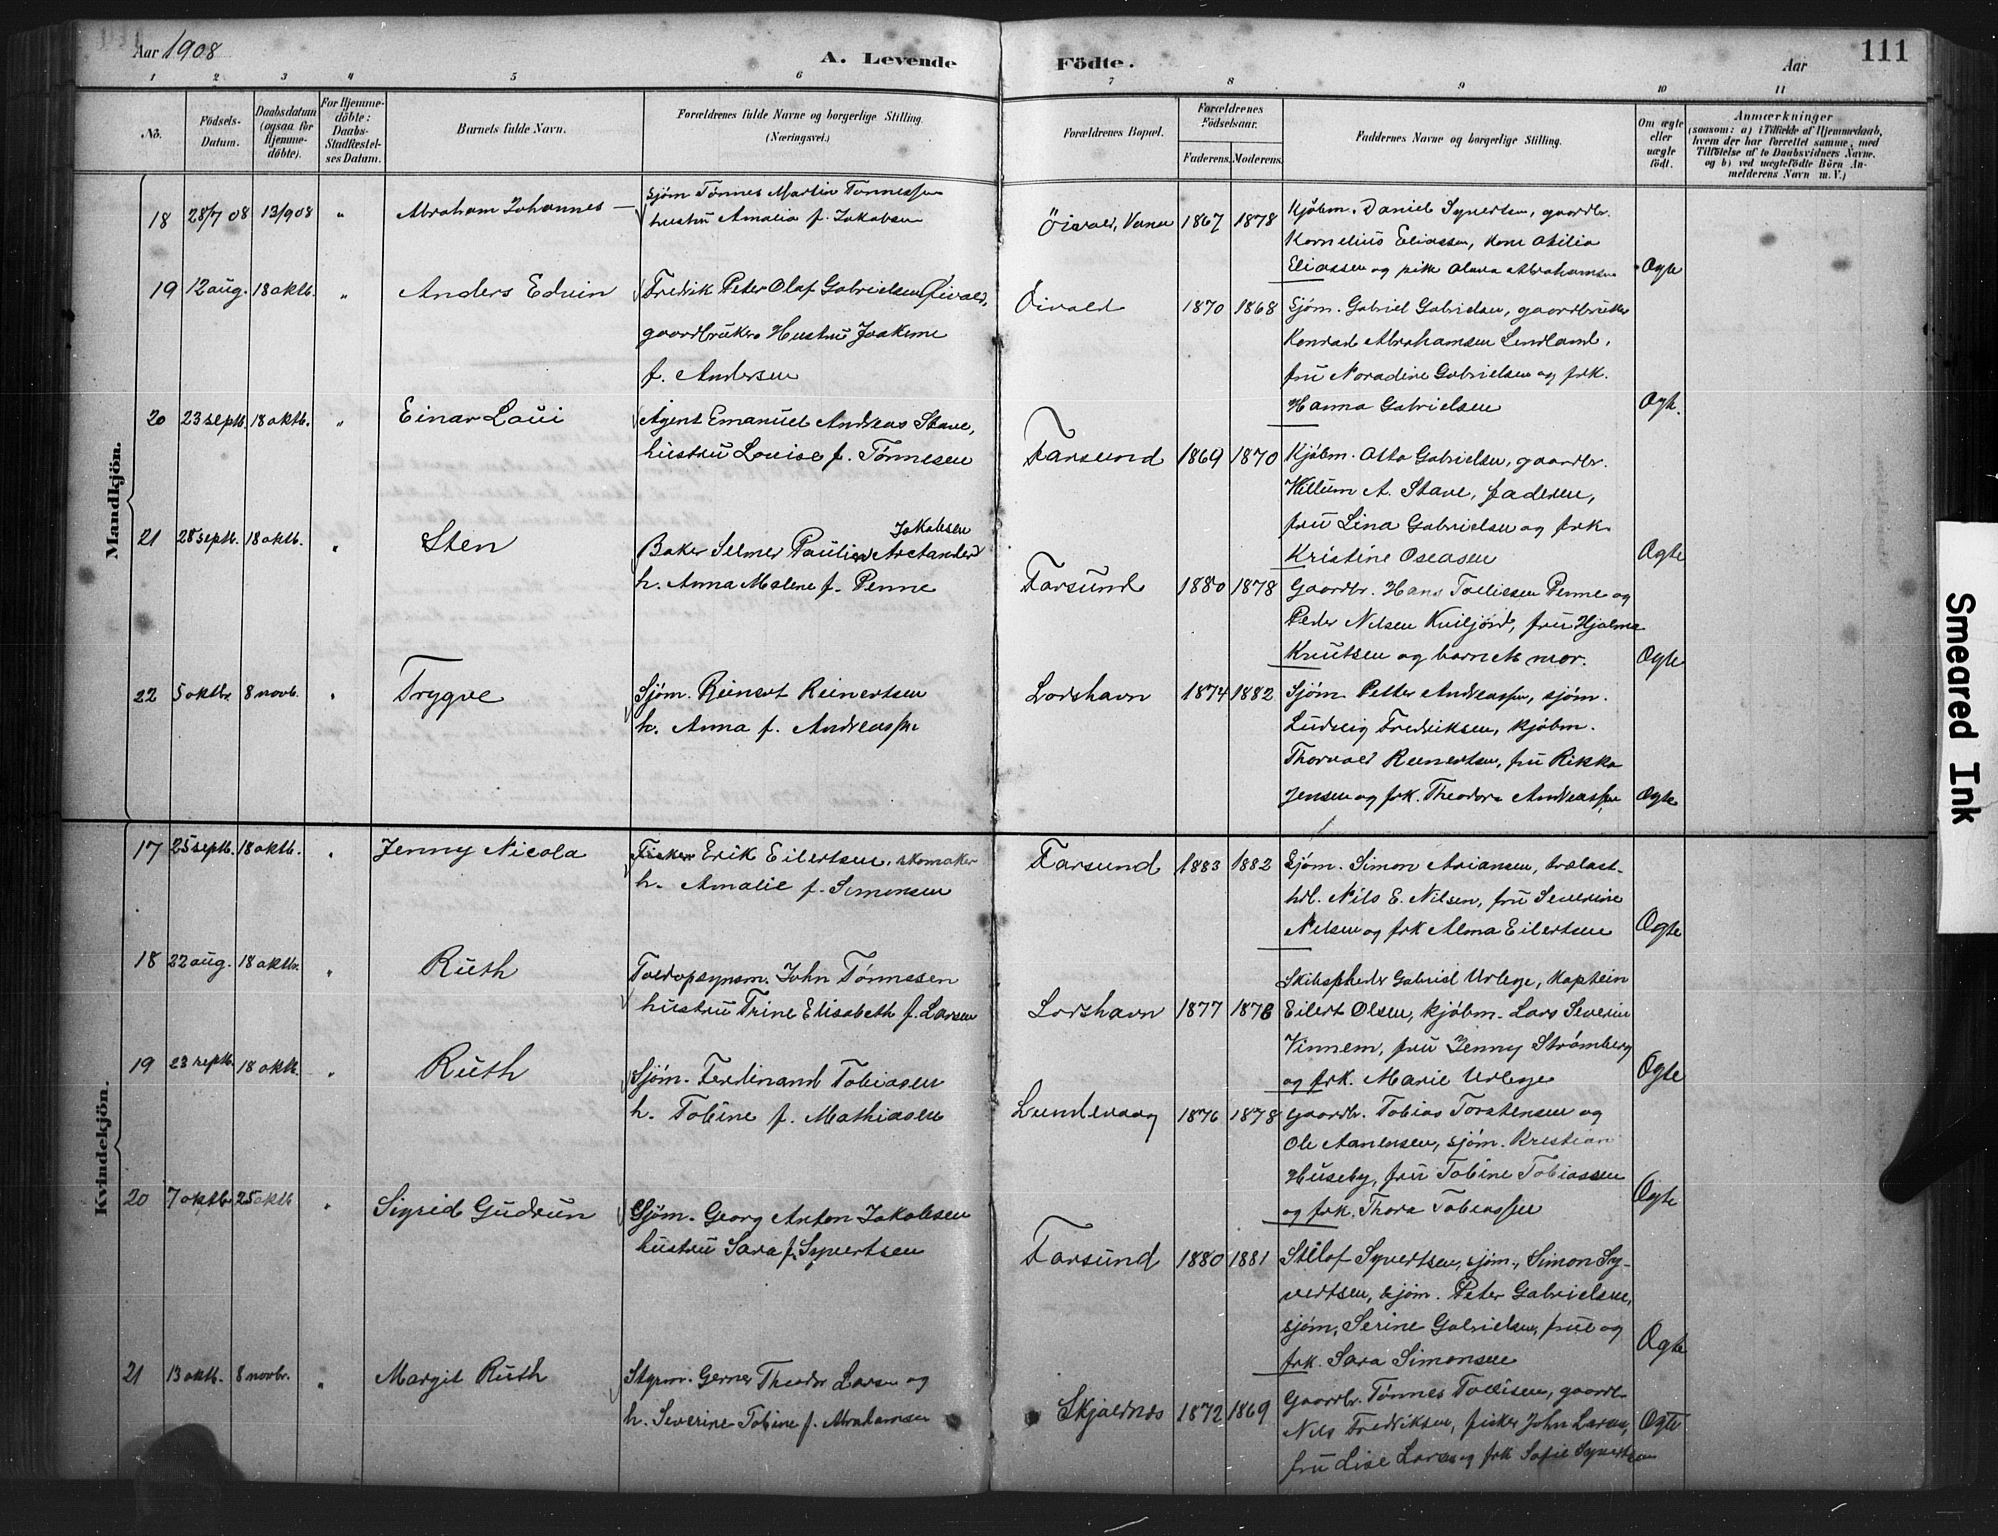 Aar 1908
A. Levende
Födte.
Aar
111
1 2 3 4 5 6 7 8 9 10 11
No.
Födsels-
Datum.
Daabsdatum
(ogsaa for
Hjemme-
döbte).
For Hjemme-
döbte:
Daabs-
Stadfæstel-
ses Datum.
Barnets fulde Navn.
Forældrenes fulde Navne og borgerlige Stilling.
(Næringsvei.)
Forældrenes Bopæl.
Forældrenes
Födselsaar.
Faderens. Moderens.
Faddernes Navne og borgerlige Stilling.
Om ægte
eller
uægte
födt.
Anmærkninger
(saasom: a) i Tilfælde af Hjemmedaab,
hvem der har forrettet samme, med
Tilföielse af to Daabsvidners Navne.
og b) ved uægtefödte Börn An-
melderens Navn m. V.)
Mandkjön.
18 28/7 08 13/9 08 " Abraham Johannes
Sjøm Tønnes Martin Tønnessen
hustru Amalia f. Jakobsen
Öivold, Vanse 1867 1878
Kjøbm. Daniel Syvertsen, gaardbr.
Kornelius Eliassen, kone Otilia
Eliassen og pike Olava Abrahamsen
Ægte
19 12 aug. 18 oktb. " Anders Edvin
Fredrik Peter Olaf Gabrielsen Øivold,
gaardbrukers Hustru Joakime
f. Andersen
Öivold 1870 1868
Sjøm. Gabriel Gabrielsen, gaardbruker
Konrad Abrahamsen Lindland,
fru Noradine Gabrielsen og frk.
Hanna Gabrielsen
Ægte.
20 23 septb. 18 oktb. " Einar Laui
Agent Emanuel Andreas Stave,
hustru Louise f. Tønnesen
Farsund 1869 1870
Kjøbm. Otto Gabrielsen, gaardbr.
Willum A. Stave, faderen,
fru Lina Gabrielsen og frk.
Kristine Oseasen
Ægte
21 28 septb. 18 oktb. " Sten
Jakobsen
Baker Selmer Paulin Arctander
h. Anna Malene f. Penne
Farsund 1880 1878
Gaardbr. Hans Tollissen Penne og
Peder Nilsen Kviljord, fru Hjalma
Knutsen og barnets mor.
Ægte
22 5 oktbr. 8 novb. " Trygve
Sjøm. Reinert Reinertsen
h. Anna f. Andreassen
Loshavn 1874 1882
Sjøm. Petter Andreassen, sjøm.
Ludvig Fredriksen, kjøbm.
Thorvald Reinertsen, fru Rikka
Jensen og frk. Theodora Andreassen
Ægte
Kvindekjön.
17 25 septb. 18 oktb. " Jenny Nicola
Fisker Erik Eilertsen, skomaker
h. Amalie f. Simonsen
Farsund 1883 1882
Sjøm. Simon Ariansen, trælast-
hdl. Nils E. Nilsen, fru Severine
Nilsen og frk Alma Eilertsen
Ægte
18 22 aug. 18 oktbr. " Ruth
Toldopsynsm. John Tønnesen
hustru Trine Elisabeth f. Larsen
Loshavn 1877 1878
Skibsreder Gabriel Urlege, kaptein
Eilert Olsen, kjøbm. Lars Severin
Vinnem, fru Jenny Strømberg
og frk. Marie Urlege
Ægte
19 23 septb. 18 oktb. " Ruth
Sjøm. Ferdinand Tobiasen
h. Tobine f. Mathiasen
Lundevaag 1876 1878
Gaardbr. Tobias Torstensen og
Ole Aanensen, sjøm. Kristian
Huseby, fru Tobine Tobiassen
og frk. Thora Tobiassen
Ægte
20 7 oktbr. 25 oktb " Sigrid Gudrun
Sjøm. Georg Anton Jakobsen
hustru Sara f. Syvertsen
Farsund 1880 1881
Syvertsen, sjøm., Simon Sy-
vertsen, sjøm. Peter Gabrielsen,
sjøm, Serine Gabrielsen, frue og
frk. Sara Simonsen
Ægte
21 13 oktb. 8 novbr. " Margit Ruth
Styrm. Gerner Theodor Larsen og
h. Severine Tobine f. Abrahamsen
Skjoldnes 1872 1869
Gaardbr. Tønnes Tollisen, gaardbr
Nils Fredriksen, fisker John Larsen,
fru Lise Larsen og frk Sofie Syvertsen
Ægte
Smeared Ink